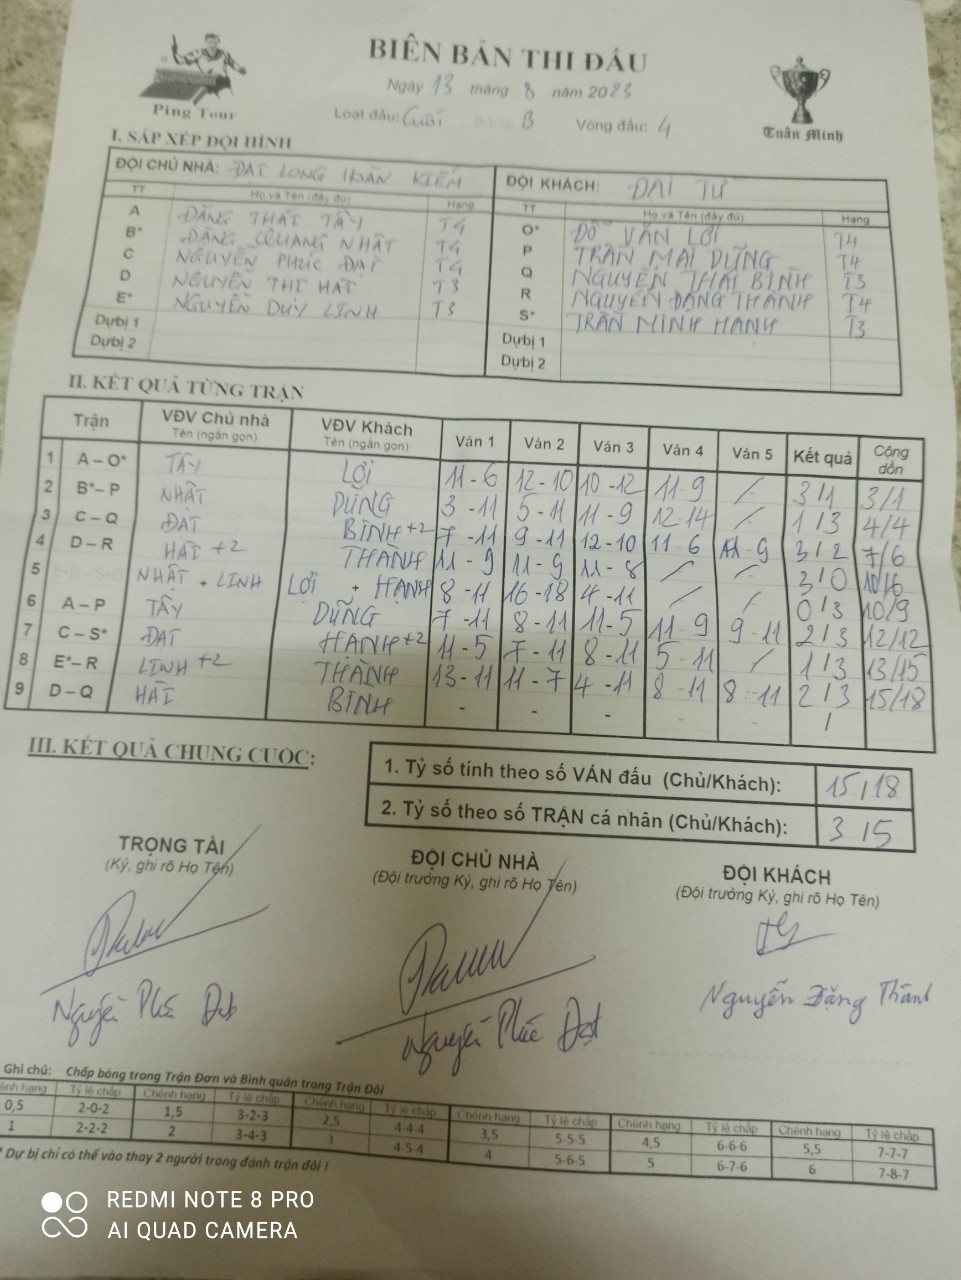 BIÊN BẢN THI ĐẤU
Ping Tour
Tuấn Minh
Ngày 13 tháng 8 năm 2023
Loạt đấu: Cuối Bảng: B Vòng đấu: 4
I. SẮP XẾP ĐỘI HÌNH
ĐỘI CHỦ NHÀ: ĐẠT LONG HOÀN KIẾM
TT Họ và Tên (đầy đủ) Hạng
A ĐẶNG THÁI TÂY T4
B* ĐẶNG QUANG NHẬT T4
C NGUYỄN PHÚC ĐẠT T4
D NGUYỄN THỊ HẢI T3
E* NGUYỄN DUY LINH T3
Dựbị 1
Dựbị 2
ĐỘI KHÁCH: ĐẠI TỪ
TT Họ và Tên (đầy đủ) Hạng
O* ĐỖ VĂN LỢI T4
P TRẦN MAI DŨNG T4
Q NGUYỄN THÁI BÌNH T3
R NGUYỄN ĐĂNG THÀNH T4
S* TRẦN MINH HẠNH T3
Dựbị 1
Dựbị 2
II. KẾT QUẢ TỪNG TRẬN
Trận VĐV Chủ nhà VĐV Khách Ván 1 Ván 2 Ván 3 Ván 4 Ván 5 Kết quả Cộng dồn
Tên (ngắn gọn) Tên (ngắn gọn)
1 A – O* TÂY LỢI 11 - 6 12 - 10 10 - 12 11 - 9 / 3/1 3/1
2 B* – P NHẬT DŨNG 3 - 11 5 - 11 11 - 9 12-14 / 1/3 4/4
3 C – Q ĐẠT BÌNH+2 7 - 11 9 - 11 12 - 10 11 - 6 11 - 9 3/2 7/6
4 D – R HẢI +2 THÀNH 11 - 9 11 - 9 11 - 8 / / 3/0 10/6
5 NHẬT + LINH LỢI + HẠNH 8 - 11 16 - 18 4 - 11 / / 0/3 10/9
6 A – P TÂY DŨNG 7 - 11 8 - 11 11 - 5 11 - 9 9 - 11 2/3 12/12
7 C – S* ĐẠT HẠNH+2 11 - 5 7 - 11 8 - 11 5 - 11 / 1/3 13/15
8 E* – R LINH +2 THÀNH 13 - 11 11 - 7 4 - 11 8 - 11 8 - 11 2/3 15/18
9 D – Q HẢI BÌNH - - - - - /
III. KẾT QUẢ CHUNG CUỘC:
1. Tỷ số tính theo số VÁN đấu (Chủ/Khách): 15/18
2. Tỷ số theo số TRẬN cá nhân (Chủ/Khách): 3/5
TRỌNG TÀI
(Ký, ghi rõ Họ Tên)
Nguyễn Phúc Đạt
ĐỘI CHỦ NHÀ
(Đội trưởng Ký, ghi rõ Họ Tên)
Nguyễn Phúc Đạt
ĐỘI KHÁCH
(Đội trưởng Ký, ghi rõ Họ Tên)
Nguyễn Đặng Thành
Ghi chú: Chấp bóng trong Trận Đơn và Bình quân trong Trận Đôi
Chênh hạng Tỷ lệ chấp Chênh hạng Tỷ lệ chấp Chênh hạng Tỷ lệ chấp Chênh hạng Tỷ lệ chấp Chênh hạng Tỷ lệ chấp Chênh hạng Tỷ lệ chấp
0,5 2-0-2 1,5 3-2-3 2,5 4-4-4 3,5 5-5-5 4,5 6-6-6 5,5 7-7-7
1 2-2-2 2 3-4-3 3 4-5-4 4 5-6-5 5 6-7-6 6 7-8-7
* Dự bị chỉ có thể vào thay 2 người trong đánh trận đôi !
REDMI NOTE 8 PRO
AI QUAD CAMERA